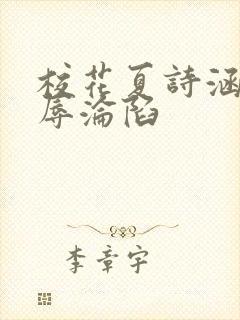 校花夏詩涵
辱淪陷
李章宇